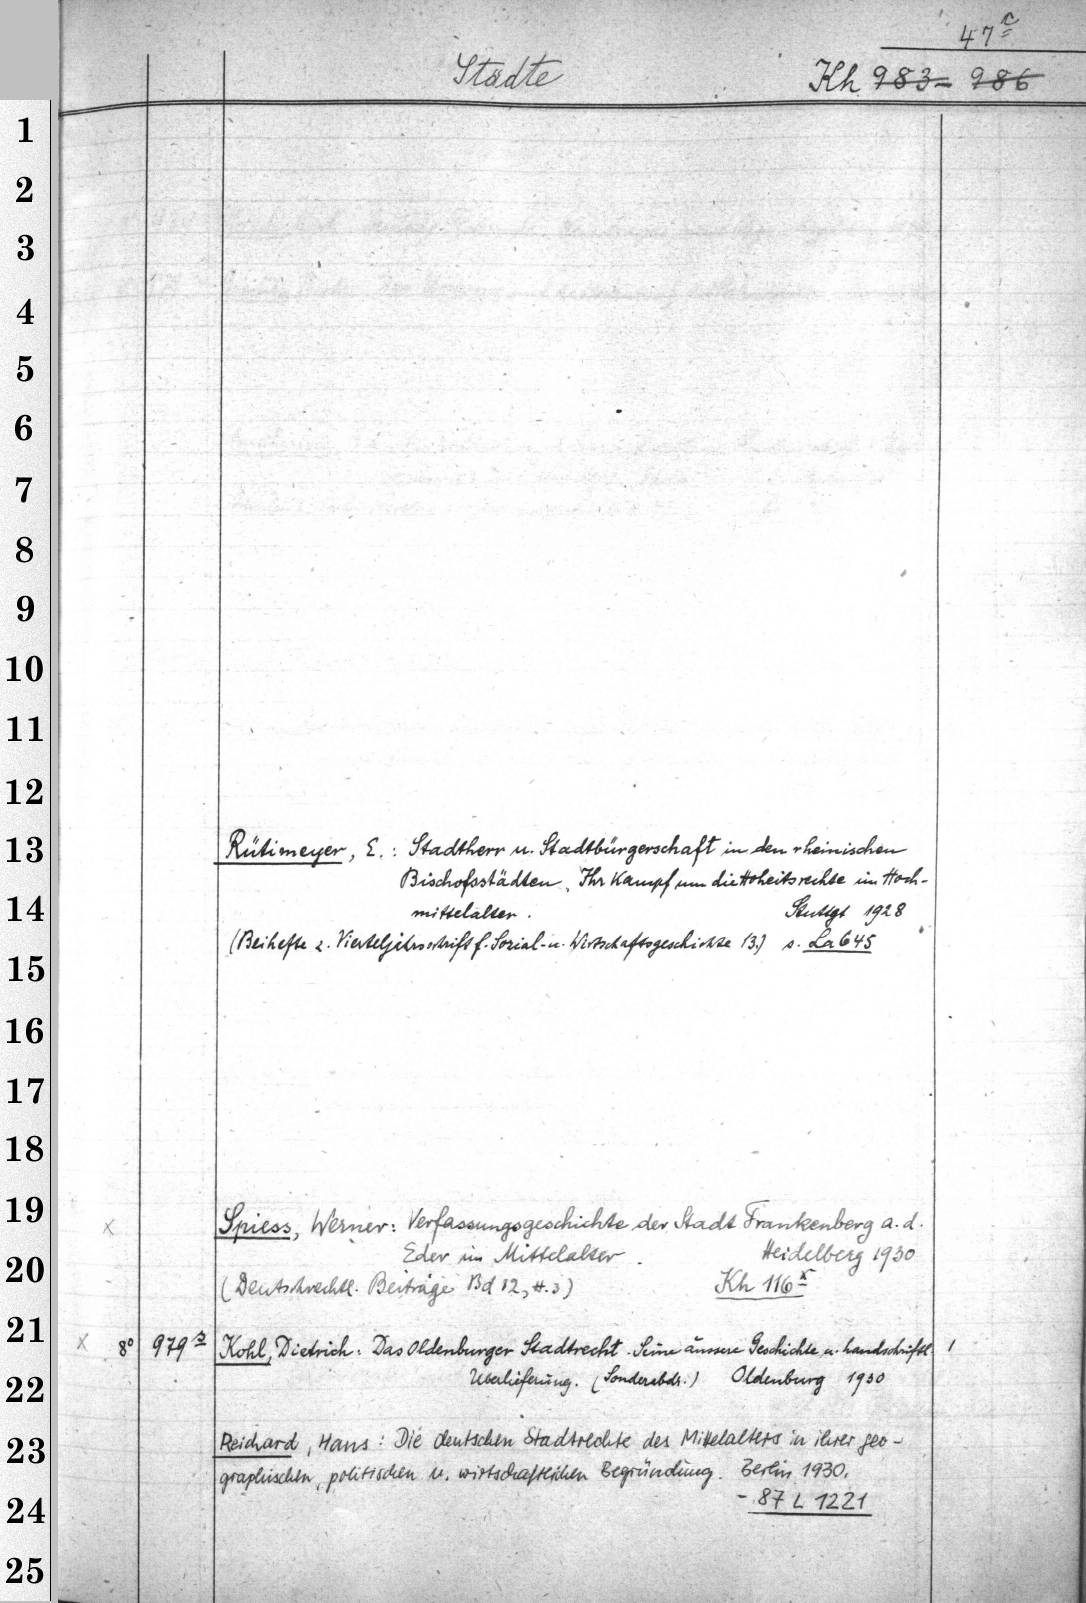 47r
Städte
Kh 983- 986
1
2
3
4
5
6
7
8
9
10
11
12
13
14
15
16
17
18
19
20
21
22
23
24
25
Rütimeyer, E.: Stadtherr u. Stadtbürgerschaft in den rheinischen
Bischofsstädten. Ihr Kampf um die Hoheitsrechte im Hoch-
mittelalter. Stuttgt 1928
(Beihefte z. Vierteljahrsschrift f. Sozial- u. Wirtschaftsgeschichte 13.) s. La 645
x Spiess, Werner: Verfassungsgeschichte der Stadt Frankenberg a. d.
Eder im Mittelalter. Heidelberg 1930
(Deutschrechtl. Beiträge Bd 12, H. 3) Kh 116x
x 8° 979 Kohl, Dietrich: Das Oldenburger Stadtrecht. Seine äussere Geschichte u. handschriftl. 1
Überlieferung. (Sonderabdr.) Oldenburg 1930
Reichard, Hans: Die deutschen Stadtrechte des Mittelalters in ihrer geo-
graphischen, politischen u. wirtschaftlichen Begründung. Berlin 1930.
- 87 L 1221